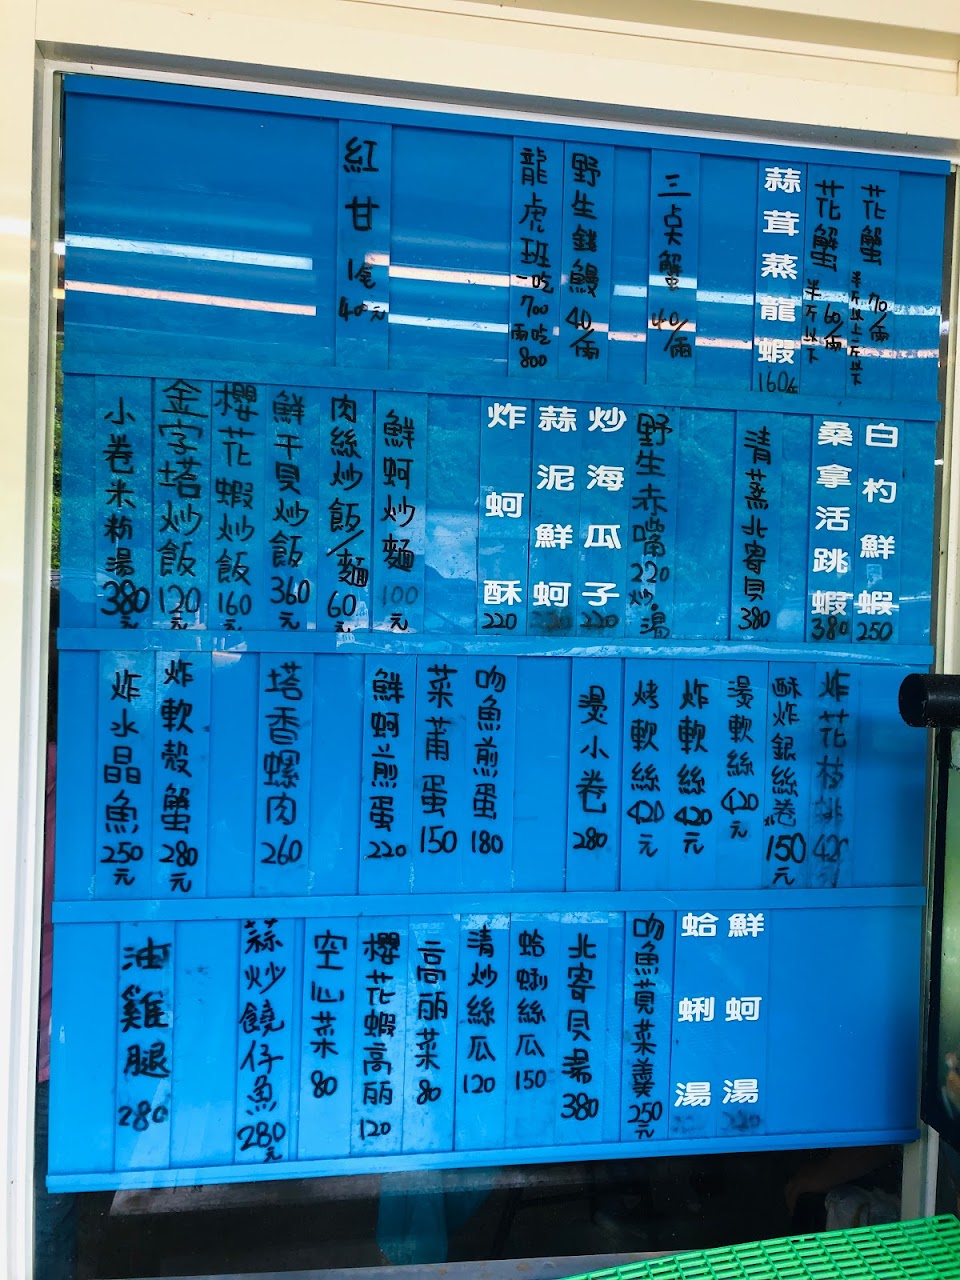 花蟹 70/兩 半斤以上一斤以下
花蟹 60/兩 半斤以下
蒜茸蒸龍蝦 160
三点蟹 40/兩
野生錢鰻 40/兩
龍虎班 一吃700 兩吃800
紅甘 1尾 400元
白灼鮮蝦 250
桑拿活跳蝦 380
清蒸北寄貝 380
野生赤嘴 220 炒.湯
炒海瓜子 220
蒜泥鮮蚵 220
炸蚵酥 220
鮮蚵炒麵 100元
肉絲炒飯/麵 60元
鮮干貝炒飯 360元
櫻花蝦炒飯 160元
金字塔炒飯 120元
小卷米粉湯 380元
炸花枝 420
酥炸銀絲卷 150元
燙軟絲 420元
炸軟絲 420元
烤軟絲 420元
燙小卷 280
吻魚煎蛋 180
菜莆蛋 150
鮮蚵煎蛋 220
塔香螺肉 260
炸軟殼蟹 280元
炸水晶魚 250元
鮮蚵湯
蛤蜊湯
吻魚莧菜羹 250元
北寄貝湯 380
蛤蜊絲瓜 150
清炒絲瓜 120
高丽菜 80
櫻花蝦高丽 120
空心菜 80
蒜炒饒仔魚 280元
油雞腿 280